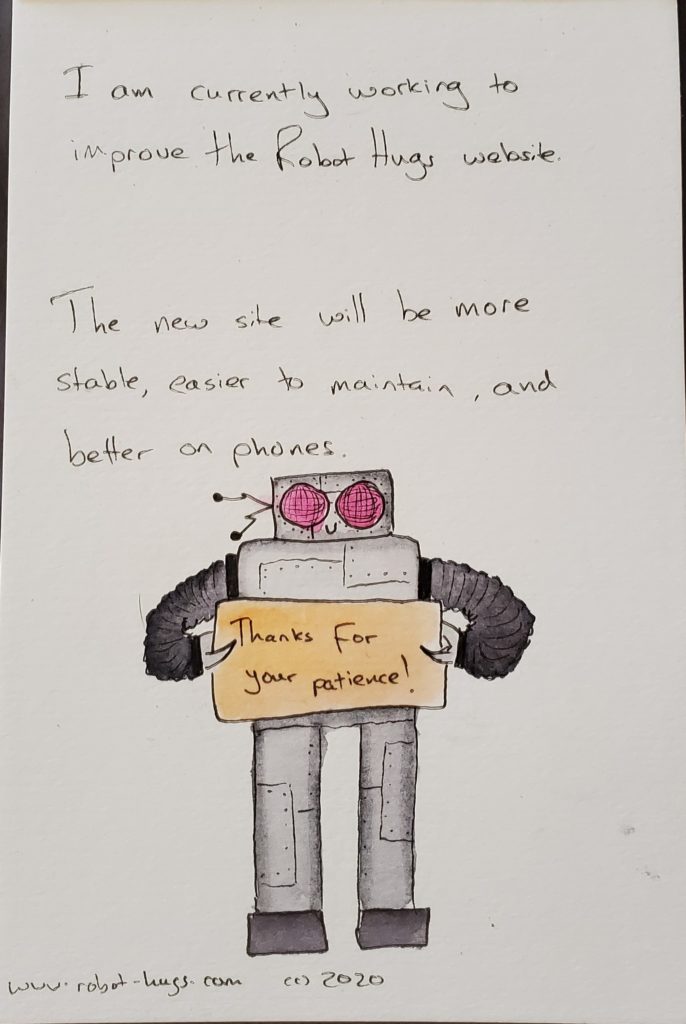 I am currently working to
improve the Robot Hugs website.
The new site will be more
stable, easier to maintain, and
better on phones.
Thanks for
your patience!
www.robot-hugs.com (c) 2020